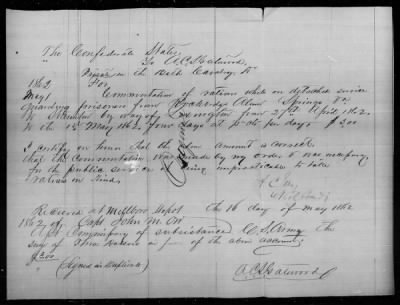 The Confederate States
To A. C. L. Gatewood,
in the Bath Cavalry, Dr
1862
May 1 For Commutation of rations while on detached service
guarding prisoners from Rockbridge Alum Springs Va
to Staunton by way of Lexington from 27th April 1862
to the 1st May 1862, four days at 75 cts per day $ 3.00
I certify on honor that the above amount is correct
that the commutation was made by my order & was necessary
for the public service it being impracticable to take
rations in kind.
Received at Millboro Depot the 16 day of May 1862
1862 of Capt John M. Orr
A. C. Commissary of subsistence C. S. Army the
sum of three Dollars in full of the above account.
$3.00
(Signed in duplicate)
A. C. L. Gatewood